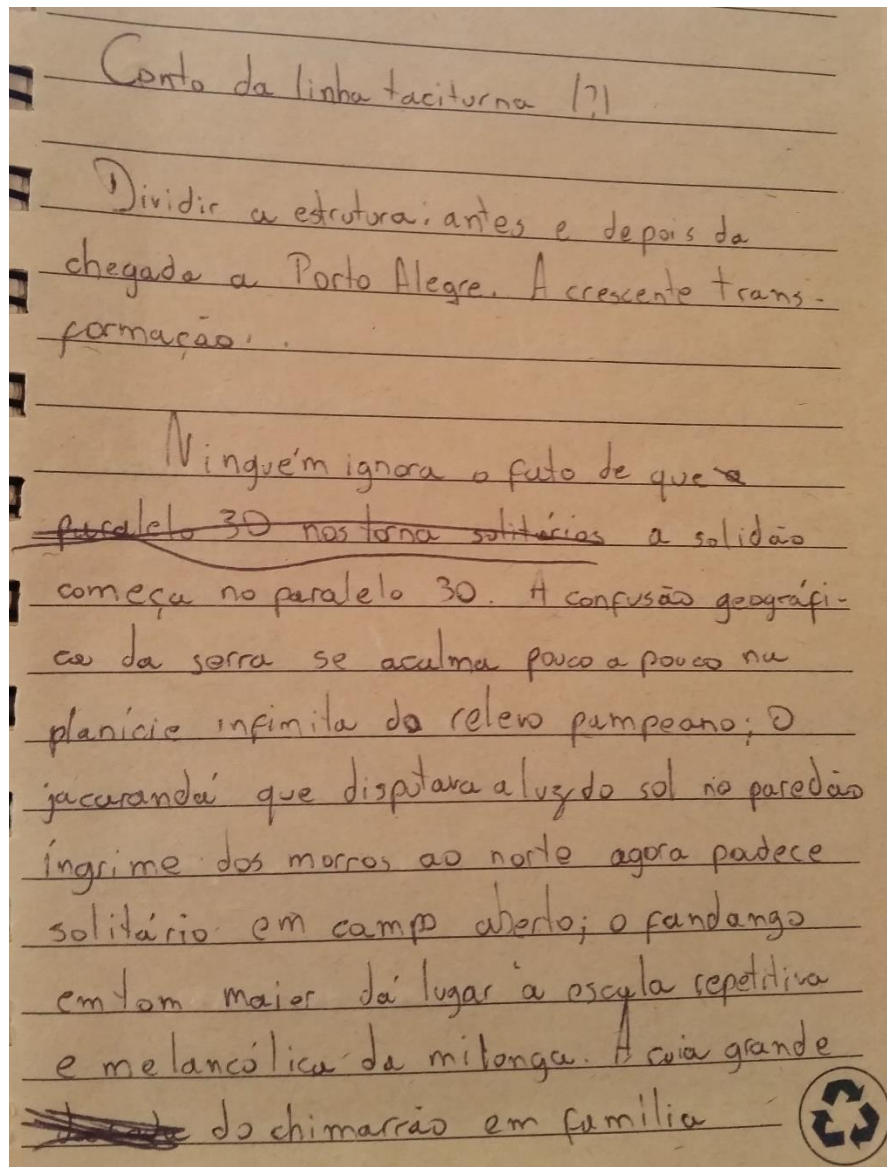 Conto da linha taciturna |?|
Dividir a estrutura: antes e depois da
chegada a Porto Alegre. A crescente trans-
formação..
Ninguém ignora o fato de que o
paralelo 30 nos torna solitários a solidão
começa no paralelo 30. A confusão geográfi-
ca da serra se acalma pouco a pouco na
planície infinita do relevo pampeano; O
jacarandá que disputava a luz do sol no paredão
íngrime dos morros ao norte agora padece
solitário em campo aberto; o fandango
em tom maior dá lugar à escala repetitiva
e melancólica da milonga. A cuia grande
do chimarrão em família